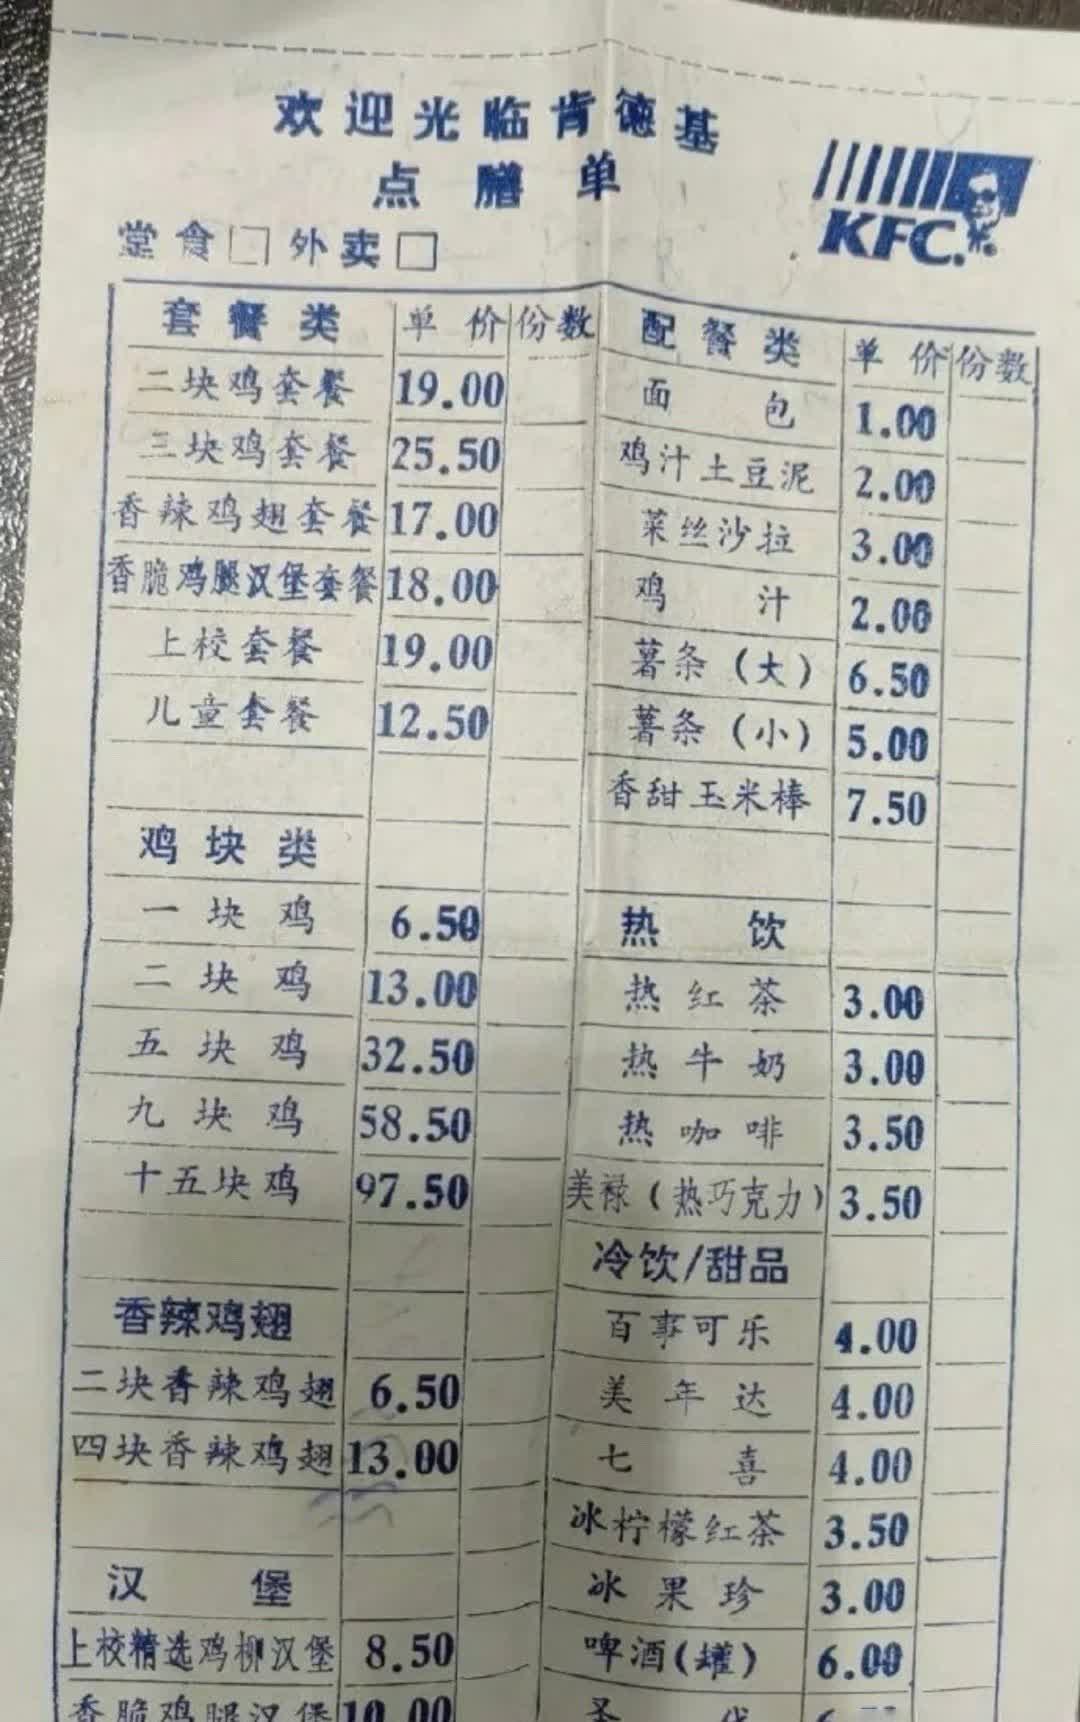 欢迎光临肯德基
点膳单
KFC.
堂食□ 外卖□
套餐类 单价 份数
二块鸡套餐 19.00
三块鸡套餐 25.50
香辣鸡翅套餐 17.00
香脆鸡腿汉堡套餐 18.00
上校套餐 19.00
儿童套餐 12.50
鸡块类
一块鸡 6.50
二块鸡 13.00
五块鸡 32.50
九块鸡 58.50
十五块鸡 97.50
香辣鸡翅
二块香辣鸡翅 6.50
四块香辣鸡翅 13.00
汉堡
上校精选鸡柳汉堡 8.50
香脆鸡腿汉堡 10.00
配餐类 单价 份数
面包 1.00
鸡汁土豆泥 2.00
菜丝沙拉 3.00
鸡汁 2.00
薯条(大) 6.50
薯条(小) 5.00
香甜玉米棒 7.50
热饮
热红茶 3.00
热牛奶 3.00
热咖啡 3.50
美禄(热巧克力) 3.50
冷饮/甜品
百事可乐 4.00
美年达 4.00
七喜 4.00
冰柠檬红茶 3.50
冰果珍 3.00
啤酒(罐) 6.00
圣代